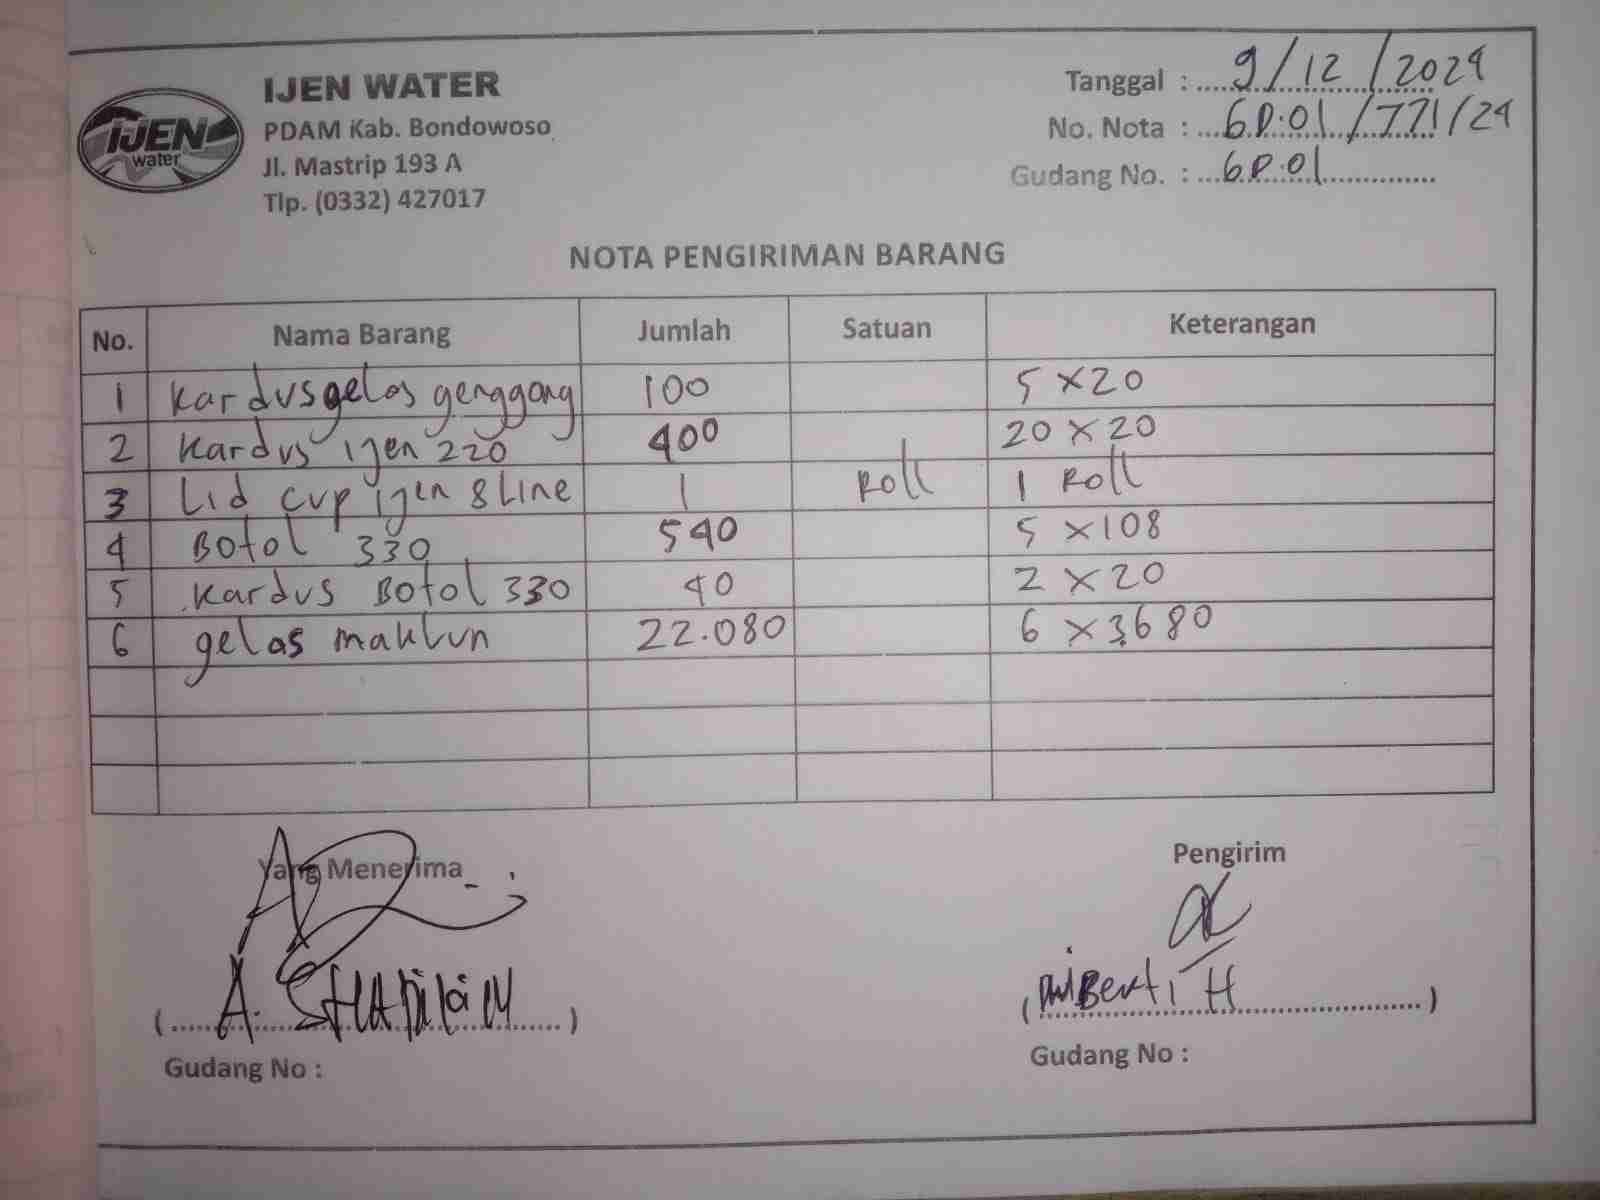 IJEN
water
IJEN WATER
PDAM Kab. Bondowoso
Jl. Mastrip 193 A
Tlp. (0332) 427017
Tanggal : 9/12/2024
No. Nota : GD.01/771/24
Gudang No. : GD.01
NOTA PENGIRIMAN BARANG
No. Nama Barang Jumlah Satuan Keterangan
1 Kardus gelas genggong 100 5 x 20
2 Kardus ijen 220 400 20 x 20
3 Lid cup ijen 8 Line 1 Roll 1 Roll
4 Botol 330 540 5 x 108
5 Kardus Botol 330 40 2 x 20
6 gelas maklun 22.080 6 x 3.680
Yang Menerima Pengirim
(A. ) ( H )
Gudang No : Gudang No :